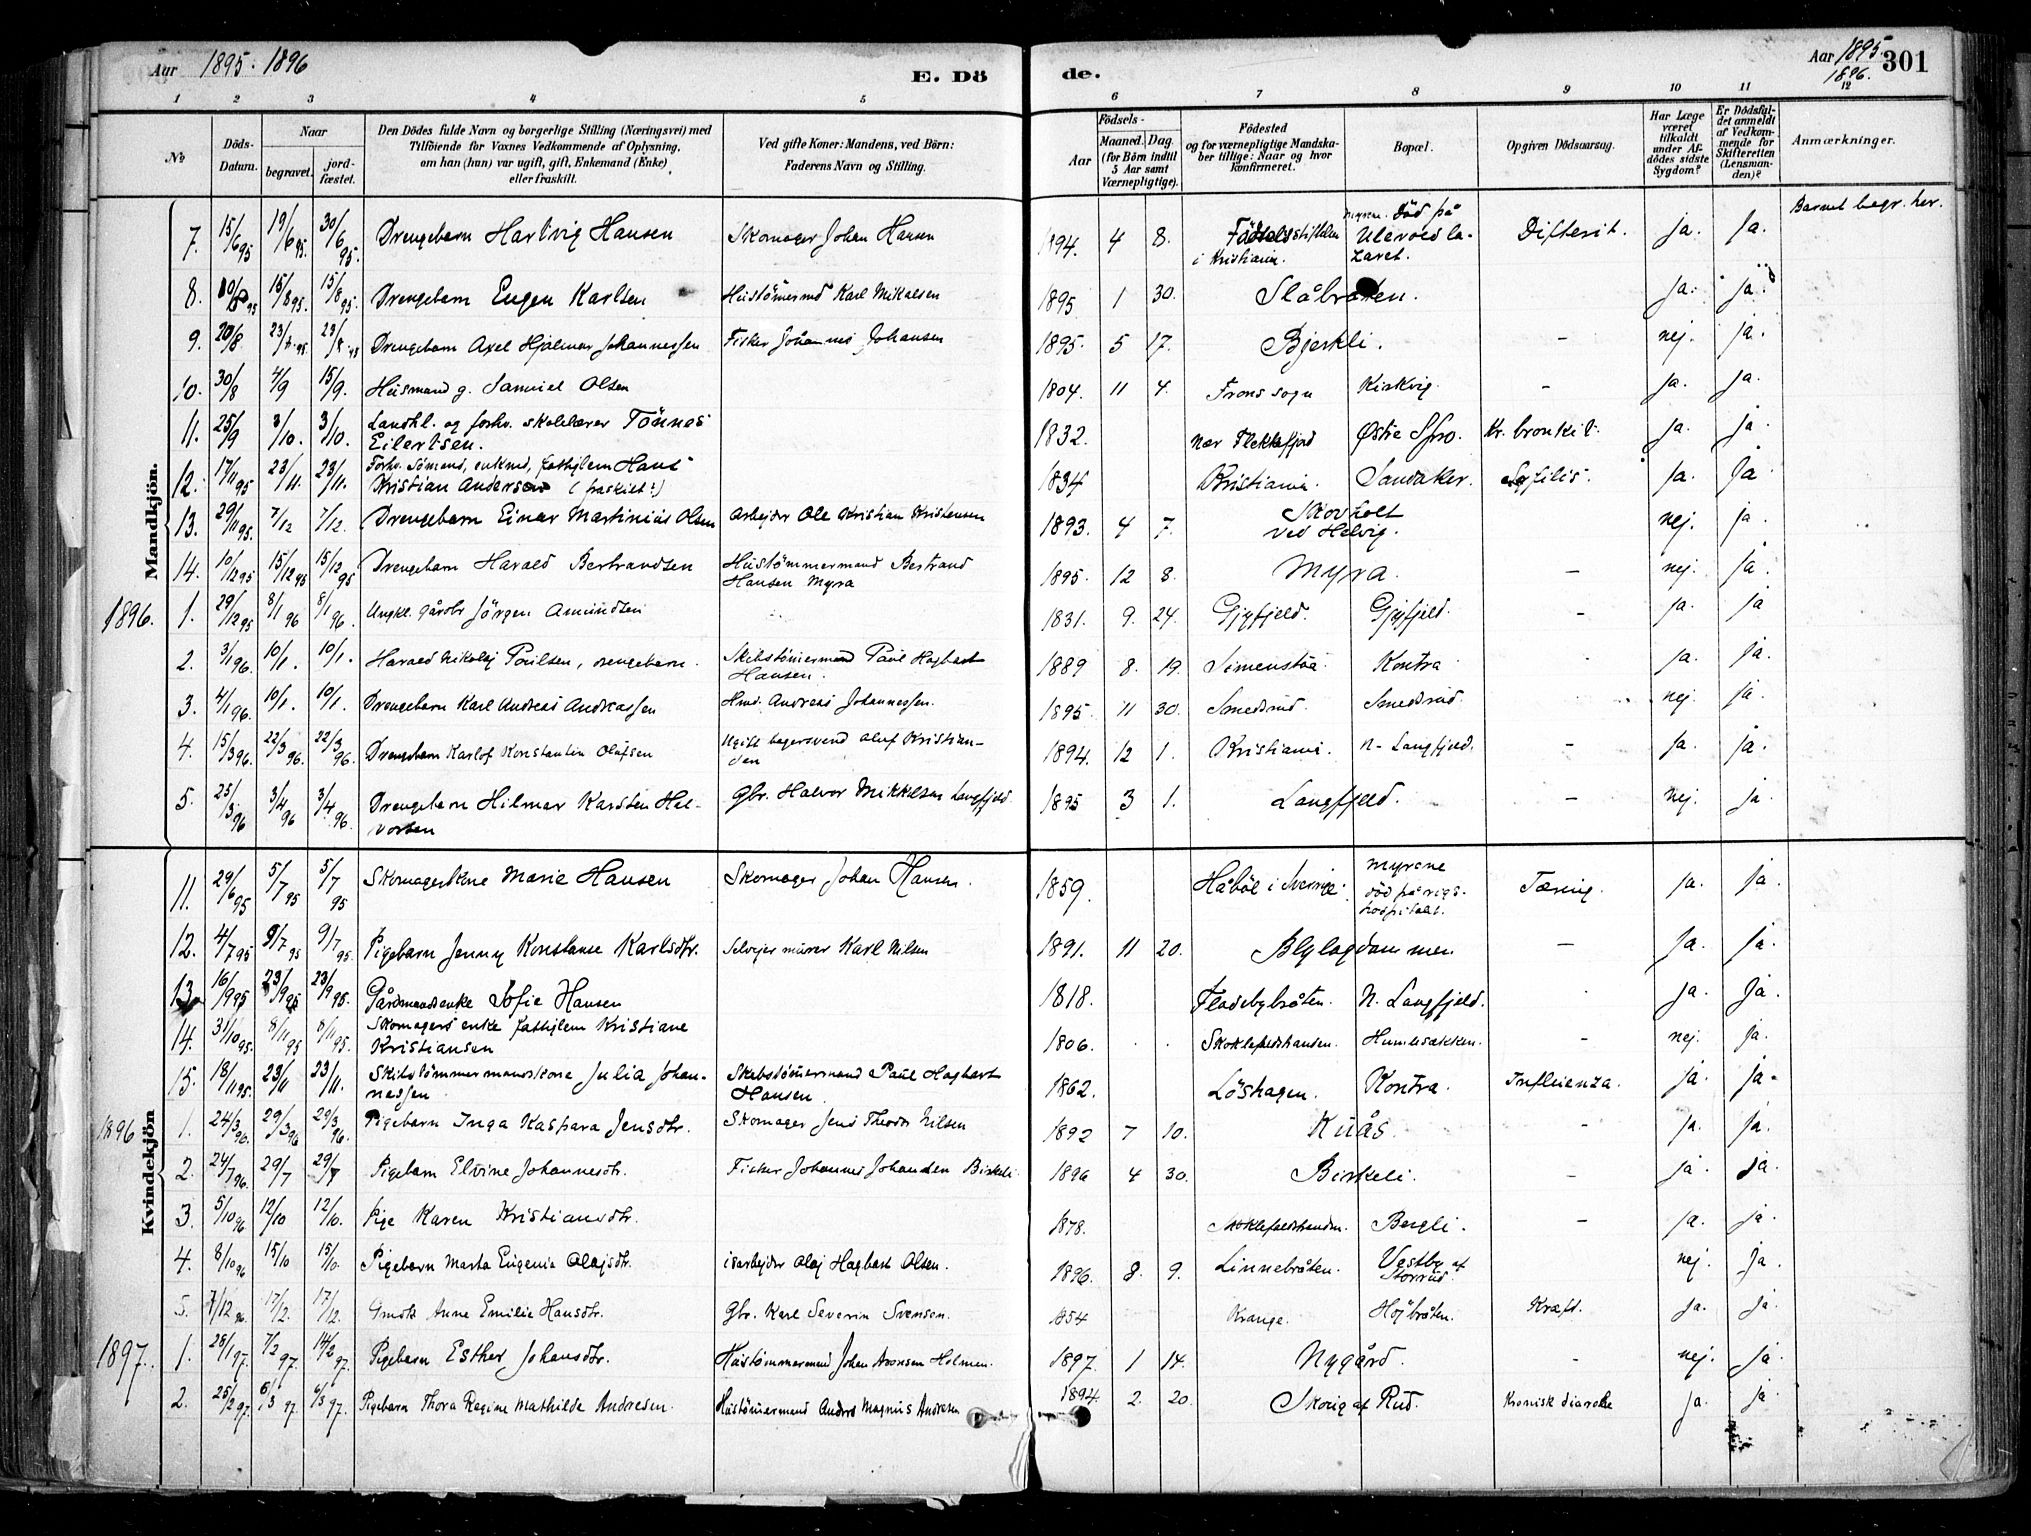 Aar 1895-1896
E. Dö
de.
Aar 1895-
1896.
301
1 2 3 4 5 6 7 8 9 10 11 12
No
Döds-Datum.
Naar
begravet. jordfæstet.
Den Dödes fulde Navn og borgerlige Stilling (Næringsvei) med
Tilföiende for Voxnes Vedkommende af Oplysning,
om han (hun) var ugift, gift, Enkemand (Enke)
eller fraskilt.
Ved gifte Koner: Mandens, ved Börn:
Faderens Navn og Stilling.
Födsels-
Aar Maaned. Dag.
(for Börn indtil
5 Aar samt
Værnepligtige).
Födested
og for værnepligtige Mandskaber tillige: Naar og hvor
konfirmeret.
Bopæl.
Opgiven Dödsaarsag.
Har Læge
været
tilkaldt
under Afdödes sidste
Sygdom?
Er Dödsfaldet anmeldt
af Vedkommende for
Skifteretten
(Lensmanden)?
Anmærkninger.
Mandkjön.
7. 15/6 95 19/6 95. 30/6 95. Drengebarn Hartvig Hansen Skomager Johan Hansen 1894. 4 8. Födselsstiftelsen i Kristiania. Myrene. död på Ulevold lazaret. Difterit. ja. ja. Barnet begr. her.
8. 15/8 95. 15/8 95. Drengebarn Eugen Karlsen Hustömermd Karl Mikalsen 1895 1 30. Slåbråten. ja. ja.
9. 20/8 23/8 95. 23/8 95 Drengebarn Axel Hjalmar Johannessen Fisker Johannes Johansen 1895. 5 17. Bjerkli. - nej. ja.
10. 30/8 4/9 15/9. Husmand g. Samuel Olsen 1804. 11 4. Frons sogn Kirkvig. - ja. ja.
11. 25/9 3/10. 3/10. Landhl. og forhv. skolelærer Tönnes
Eilertsen. 1832. nær Flekkefjord Østre Kr. bronkit. ja. ja.
12. 17/11 95 23/11. 23/11. Forhv. sömand, enkmd, fattiglem Hans
Kristian Andersen (fraskilt?) 1834 Kristiania. Sandaker. Syfilis. ja. ja
13. 29/11 95. 7/12 7/12. Drengebarn Einar Martinius Olsen Arbejder Ole Kristian Kristensen 1893. 4 7. Skovholt
ved Helvig. nej. ja.
14. 10/12 95 15/12 95 15/12 95 Drengebarn Harald Bertrandsen Hustömmermand Bertrand
Hansen Myra 1895. 12 8. Myra. - nej. ja.
1896. 1. 29/12 95 8/1 96 8/1 96. Ungkl. gårdbr Jörgen Amundsen 1831. 9. 24. Gjyfjeld. Gjyfjeld. - ja. ja
2. 3/1 96. 10/1. 10/1. Harald Nikolaj Poulsen, drengebarn. Skibstömermand Paul Hagbart
Hansen. 1889 8. 19. Simenstöa Kontra - ja. ja.
3. 4/1 96. 10/1. 10/1. Drengebarn Karl Andreas Andreassen Hmd. Andreas Johannessen. 1895. 11 30. Smedsrud. Smedsrud. nej. ja
4. 15/3 96. 22/3 96. 22/3 96. Drengebarn Karlof Konstantin Olufsen Ugift bagersvend Oluf Kristian-
sen 1894. 12 1. Kristiania. N. Langfjeld. - ja. ja.
5. 25/3 96 3/4 96 3/4 96. Drengebarn Hilmar Karsten Hal-
vorsen Gbr. Halvor Mikkelsen Langfjeld 1895 3 1. Langfjeld. - nej. ja.
Kvindekjön
11. 29/6 95 5/7 95 5/7 95 Skomagerkone Marie Hansen Skomager Johan Hansen. 1859. Håböl i Sverrige. Myrene
död på rigs-
hospitalet. Tæring. ja. ja.
12. 4/7 95 9/7 95 9/7 95. Pigebarn Jenny Konstanse Karlsdtr. Selvejer murer Karl Nilsen 1891. 11 20. Blylagdammen - ja. ja.
13. 16/9 95 23/9 95 23/9 95. Gårdmandsenke Sofie Hansen 1818. Fladebybråten. N. Langfjeld. ja. ja.
14. 31/10 95. 8/11 95 8/11 95. Skomagers enke fattiglem Kristiane
Kristiansen 1806. Skoklefaldstranden. Humlesækken. - nej. ja.
15. 18/11 95. 23/11 23/11. Skibstömmermandskone Julia Johan-
nessen Skibstömermand Paul Hagbart
Hansen. 1862. Löshagen. Kontra. Influenza. ja. ja.
1896 1. 24/3 96. 29/3 96 29/3 96. Pigebarn Inga Kaspara Jensdtr. Skomager Jens Theodor Nilsen 1892 7 10. Kuås. - ja. ja.
2. 24/7 96. 29/7 29/7 Pigebarn Elvine Johannesdtr. Fisker Johannes Johansen Birkeli 1896 4 30. Birkeli. - ja ja.
3. 5/10 96 12/10 12/10. Pige Karen Kristiansdtr. 1878. Skoklefaldstranden. Bergli. - ja. ja.
4. 8/10 96 15/10 15/10. Pigebarn Marta Eugenia Olafsdtr. isarbejder Olaf Hagbart Olsen. 1896. 8. 9. Linnebråten. Vestby af
Storrud. nej. ja.
5. 7/12 96. 17/12. 17/12. Anne Emilie Hansdtr. Gbr. Karl Severin Svensen. 1854 Krange. Höjbråten. Kræft. ja. ja
1897. 1. 25/1 97. 7/2 97. 14/2 97. Pigebarn Esther Johansdtr. Hustömmermand Johan Aronsen Holmen. 1897. 1 14. Nygård. - nej. ja
2. 25/2 97. 6/3 97. 6/3 97. Pigebarn Thora Regine Mathilde Andresen. Hustömmermand Anders Magnus Andresen 1894. 2. 20. Skorig af Rud. Kronisk diarohe ja. ja